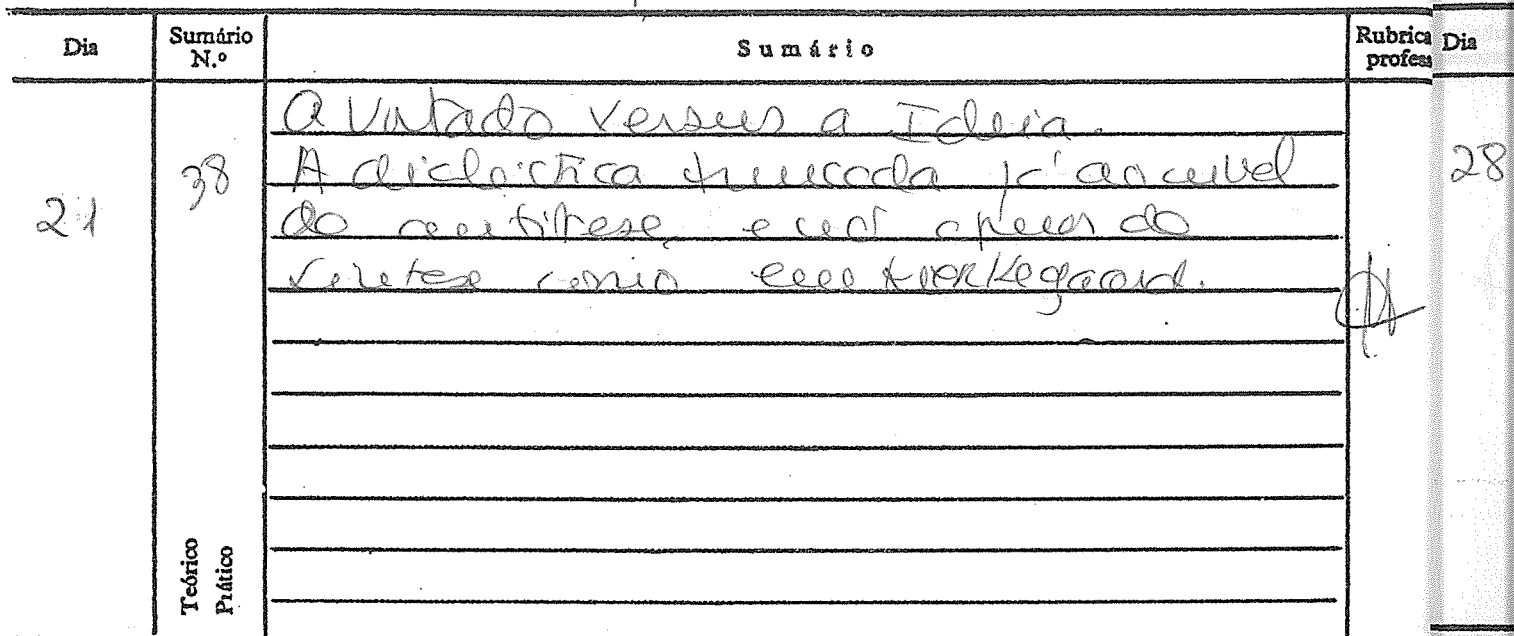 Dia Sumário N.º Sumário Rubrica profess Dia
A Vontade versus a Ideia.
38 A dialéctica truncada já ao nível 28
21 da antítese, e não apenas da
síntese como em Kierkegaard.
Teórico
Prático